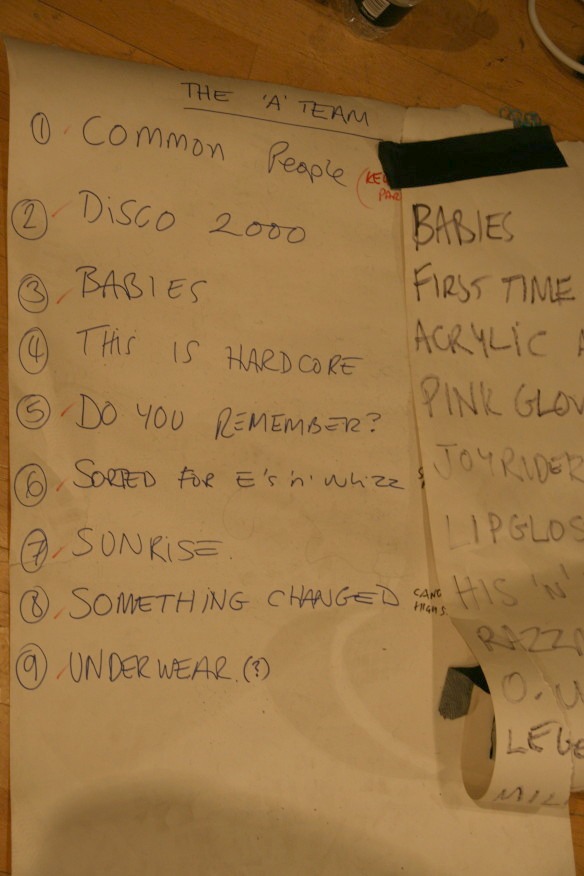 THE 'A' TEAM
① COMMON People
② DISCO 2000
③ BABIES
④ THIS IS HARDCORE
⑤ DO YOU REMEMBER?
⑥ SORTED FOR E's 'n' Whizz
⑦ SUNRISE
⑧ SOMETHING CHANGED
⑨ UNDERWEAR (?)
BABIES
FIRST TIME
ACRYLIC A
PINK GLOV
JOYRIDER
LIPGLOS
HIS 'N'
RAZZ
O. U
LEGE
MIL